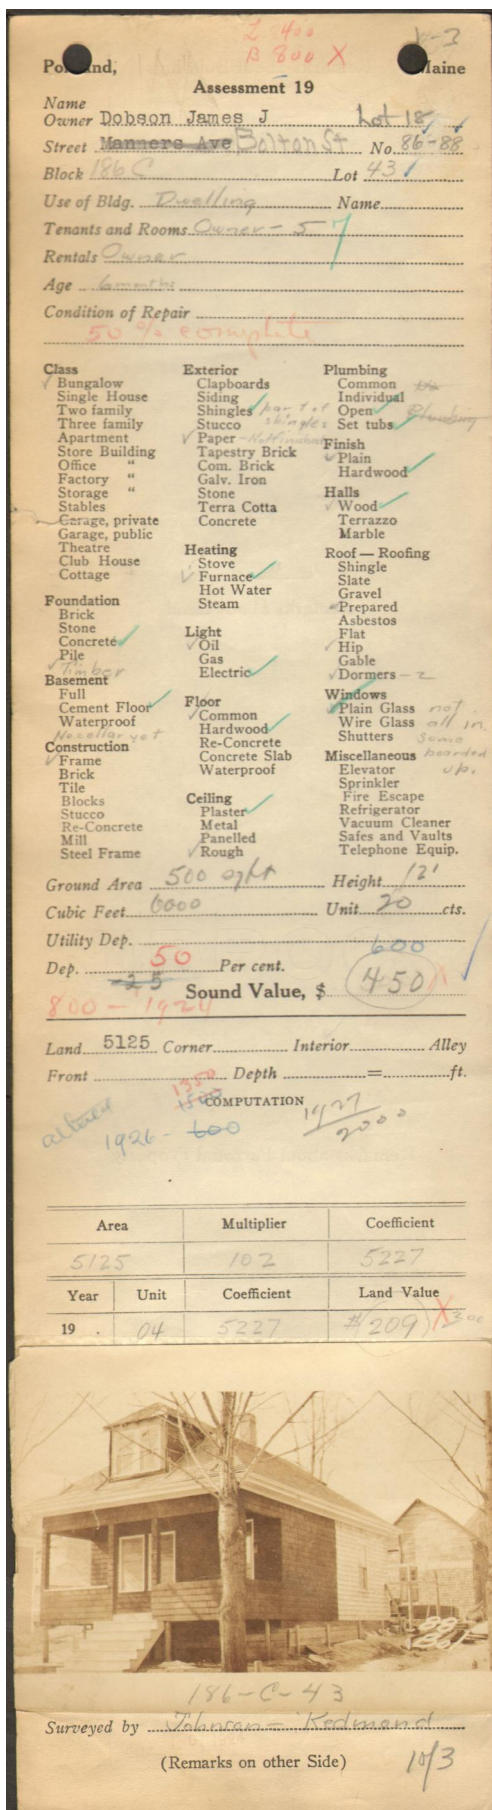 L 400
B 800 X
Portland, Maine
Assessment 19
Name
Owner Dobson James J Lot 18
Street Manners Ave Bolton St No. 86-88
Block 186 C Lot 43
Use of Bldg. Dwelling Name
Tenants and Rooms Owner - 5 7
Rentals Owner
Age 6 months
Condition of Repair
50 % complete
Class
Bungalow
Single House
Two family
Three family
Apartment
Store Building
Office "
Factory "
Storage "
Stables
Garage, private
Garage, public
Theatre
Club House
Cottage
Foundation
Brick
Stone
Concrete
Pile
Timber
Basement
Full
Cement Floor
Waterproof
No cellar yet
Construction
Frame
Brick
Tile
Blocks
Stucco
Re-Concrete
Mill
Steel Frame
Exterior
Clapboards
Siding
Shingles part of
Stucco shingles
Paper - Not finished
Tapestry Brick
Com. Brick
Galv. Iron
Stone
Terra Cotta
Concrete
Heating
Stove
Furnace
Hot Water
Steam
Light
Oil
Gas
Electric
Floor
Common
Hardwood
Re-Concrete
Concrete Slab
Waterproof
Ceiling
Plaster
Metal
Panelled
Rough
Plumbing
Common No
Individual
Open Plumbing
Set tubs
Finish
Plain
Hardwood
Halls
Wood
Terrazzo
Marble
Roof — Roofing
Shingle
Slate
Gravel
Prepared
Asbestos
Flat
Hip
Gable
Dormers - 2
Windows
Plain Glass not
Wire Glass all in.
Shutters some
Miscellaneous boarded
Elevator up.
Sprinkler
Fire Escape
Refrigerator
Vacuum Cleaner
Safes and Vaults
Telephone Equip.
Ground Area 500 sq ft Height 12'
Cubic Feet 6000 Unit 20 cts.
Utility Dep. 600
50
Dep. 25 Per cent.
Sound Value, $ 450 X
800 - 1924
Land 5125 Corner Interior Alley
Front Depth = ft.
1350
1500
COMPUTATION
altered 1926 - 600
1927
2000
Area Multiplier Coefficient
5125 102 5227
Year Unit Coefficient Land Value
19 . 04 5227 $209 X 300
186-C-43
Surveyed by Johnson - Redmond
(Remarks on other Side) 10/3